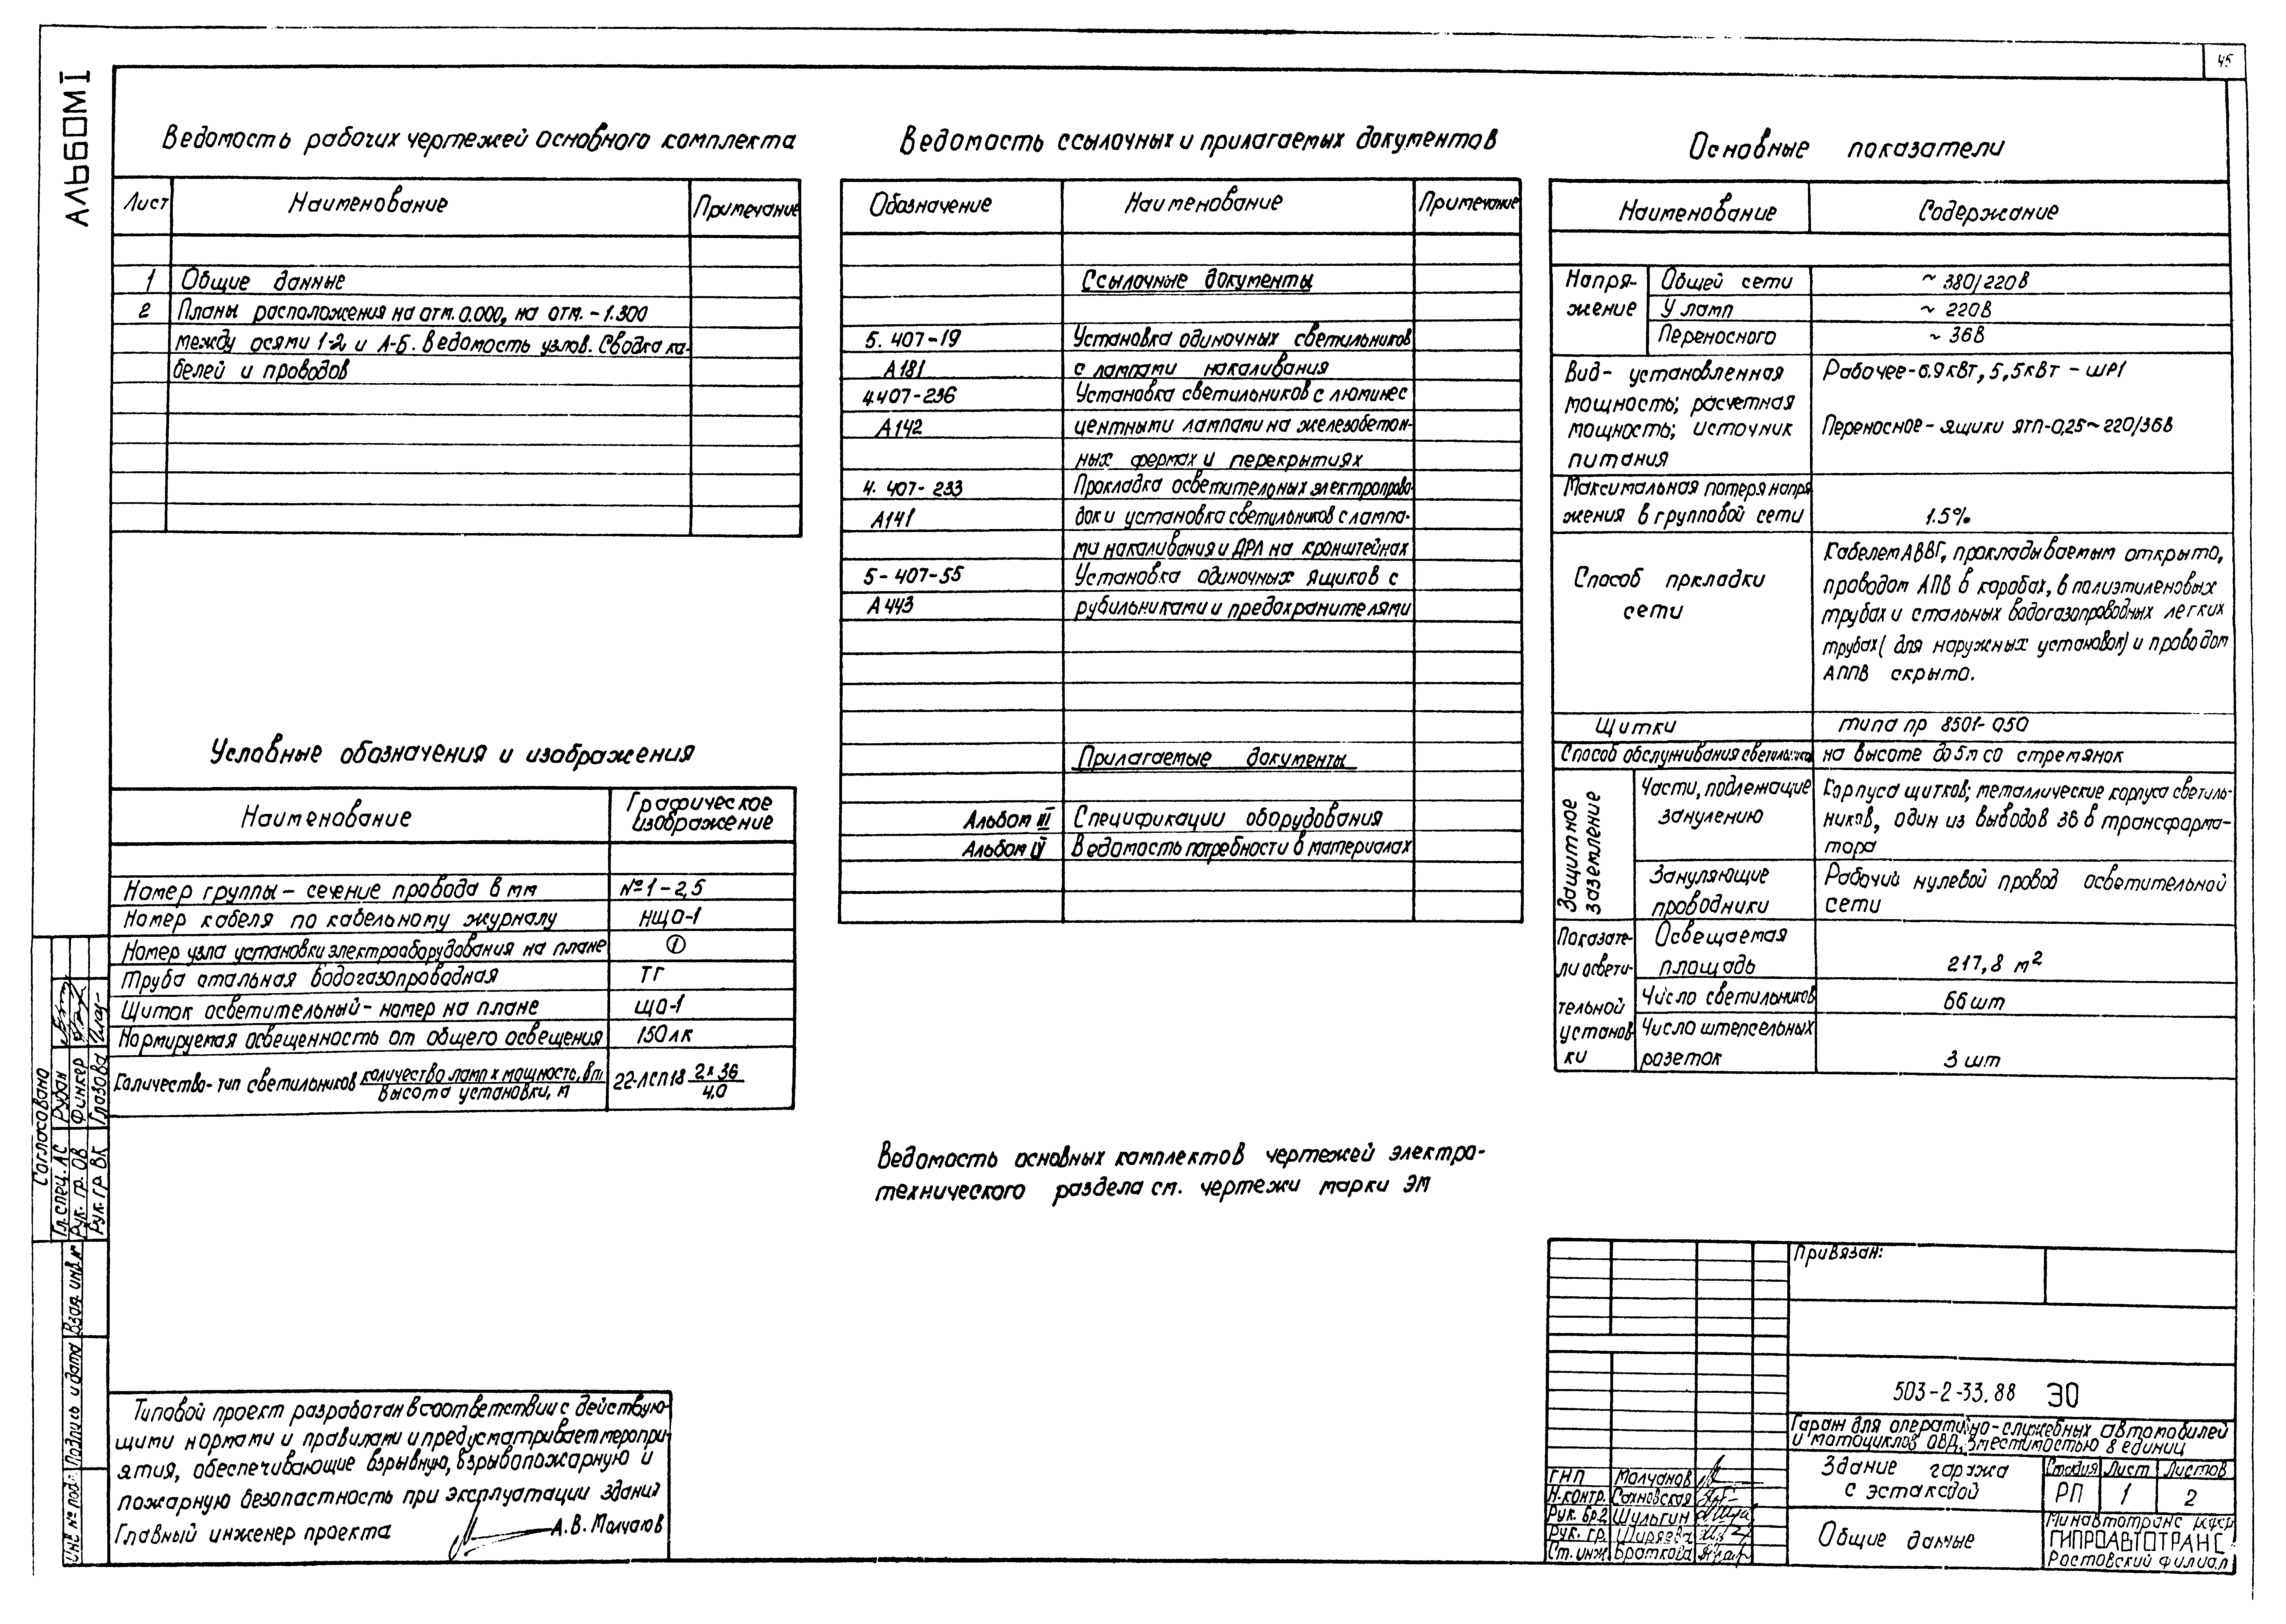 45
АЛЬБОМ I
Ведомость рабочих чертежей основного комплекта
Лист Наименование Примечание
1 Общие данные
2 Планы расположения на отм. 0.000, на отм. -1.300
между осями 1-2 и А-Б. Ведомость узлов. Сводка ка-
белей и проводов
Условные обозначения и изображения
Наименование Графическое
изображение
Номер группы - сечение провода в мм №1-2,5
Номер кабеля по кабельному журналу НЩО-1
Номер узла установки электрооборудования на плане 1
Труба стальная водогазопроводная ТГ
Щиток осветительный - номер на плане ЩО-1
Нормируемая освещенность от общего освещения 150лк
Количество-тип светильников количество ламп х мощность, Вт 22-ЛСП18 2х36
Высота установки, м 4,0
Ведомость ссылочных и прилагаемых документов
Обозначение Наименование Примечание
Ссылочные документы
5. 407-19 Установка одиночных светильников
А181 с лампами накаливания
4.407-236 Установка светильников с люминес
А142 центными лампами на железобетон-
ных фермах и перекрытиях
4. 407-233 Прокладка осветительных электропрово-
А141 док и установка светильников с лампа-
ми накаливания и ДРЛ на кронштейнах
5-407-55 Установка одиночных ящиков с
А443 рубильниками и предохранителями
Прилагаемые документы
Альбом III Спецификации оборудования
Альбом IV Ведомость потребности в материалах
Ведомость основных комплектов чертежей электро-
технического раздела см. чертежи марки ЭМ
Основные показатели
Наименование Содержание
Напря- Общей сети ~ 380/220В
жение У ламп ~ 220В
Переносного ~ 36В
Вид- установленная Рабочее-6.9кВт, 5,5кВт - ШР1
мощность; расчетная
мощность; источник Переносное- ящики ЯТП-0,25~220/36В
питания
Максимальная потеря напря
жения в групповой сети 1.5%
Способ пркладки
сети
Кабелем АВВГ, прокладываемым открыто,
проводом АПВ в коробах, в полиэтиленовых
трубах и стальных водогазопроводных легких
трубах( для наружных установок) и проводом
АППВ скрыто.
Щитки типа пр 8501-050
Способ обслуживания светильников на высоте до 5м со стремянок
Защитное
заземление
Части, подлежащие Корпуса щитков; металлические корпуса светиль-
занулению ников, один из выводов 36 В трансформа-
тора
Зануляющие Рабочий нулевой провод осветительной
проводники сети
Показате- Освещаемая
ли освети- площадь 217,8 м2
тельной Число светильников 66 шт
установ- Число штепсельных
ки розеток 3 шт
Типовой проект разработан в соответствии с действую-
щими нормами и правилами и предусматривает меропри-
ятия, обеспечивающие взрывную, взрывопожарную и
пожарную безопастность при эксплуатации здания
Главный инженер проекта А.В. Молчанов
Согласовано
Гл. спец. АС Рубан
Рук. гр. ОВ Финкер
Рук. гр ВК Глазова
Взам. инв. №
Подпись и дата
Инв № подл.
Привязан:
503-2-33.88 ЭО
Гараж для оперативно-служебных автомобилей
и мотоциклов ОВД, вместимостью 8 единиц
Здание гаража
с эстакадой
Стадия Лист Листов
РП 1 2
Общие данные
Минавтотранс РСФСР
ГИПРОАВТОТРАНС
Ростовский филиал
ГИП Молчанов
Н.контр. Сохновская
Рук. бр.2 Шульгин
Рук. гр. Ширяева
Ст. инж Браткова